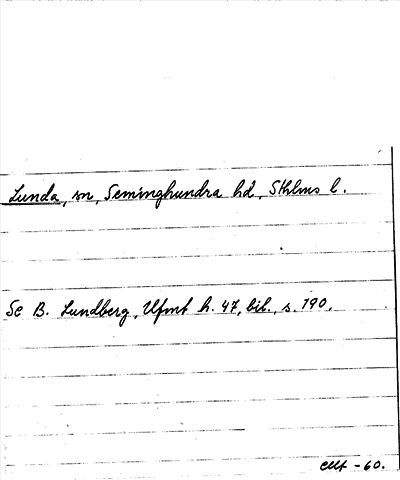 Lunda, sn, Seminghundra hd, Sthlms l.
Se B. Lundberg, Ufmt h. 47, bil., s. 190.
-60.